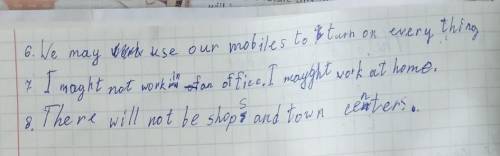 6. We may use our mobiles to turn on every thing
7. I maght not work in an office. I mayght work at home.
8. There will not be shops and town centers.